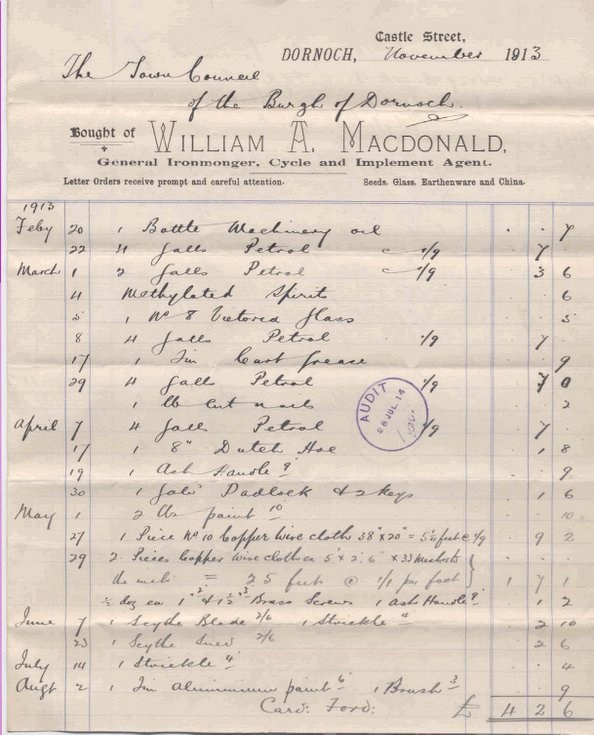 Castle Street,
DORNOCH, November 1913
The Town Council
of the Burgh of Dornoch.
Bought of WILLIAM A. MACDONALD,
General Ironmonger, Cycle and Implement Agent.
Letter Orders receive prompt and careful attention. Seeds, Glass, Earthenware and China.
1913
Feby 20 1 Bottle Machinery oil . . 7
22 4 Galls Petrol 1/9 . 7 .
March 1 2 Galls Petrol 1/9 . 3 6
4 Methylated Spirits . . 6
5 1 No 8 Glass . . 5
8 4 Galls Petrol 1/9 . 7 .
17 1 Tin Cart Grease . . 9
29 4 Galls Petrol 1/9 . 7 0
1 lb Cut nails . . 2
AUDIT
JUL. 14
April 7 4 Galls Petrol 1/9 . 7 .
17 1 8" Dutch Hoe . 1 8
19 1 Ash Handle 9 . . 9
30 1 Galv Padlock & 2 keys . 1 6
May 1 2 lbs paint 10 . . 10
27 1 Piece No 10 Copper wire cloth 38" x 20" = feet @ 1/9 . 9 2
29 2 Pieces Copper wire cloth ea 5' x 2' 6" x 33
= 25 feet @ 1/1 per foot } 1 7 1
½ doz ea Brass Screws 1 Ash Handle 9 . 1 2
June 7 1 Scythe Blade 2/6 1 Strickle 4 . 2 10
23 1 Scythe Sned 2/6 . 2 6
July 14 1 Strickle 4 . . 4
Augt 2 1 Tin aluminium paint 6 1 Brush 3 . . 9
Card. Ford: £ 4 2 6